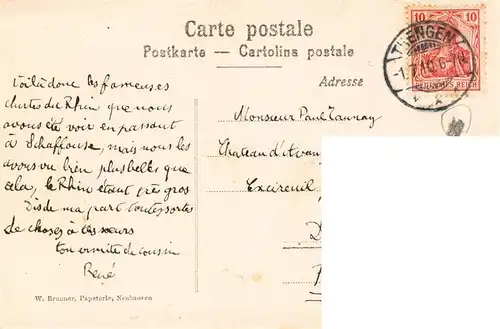 Carte postale
Postkarte — Cartolina postale
Adresse
10 10
DEUTSCHES REICH
THENGEN
Voilà donc les fameuses
chutes du Rhin que nous
avons été voir en passant
à Schaffouse, mais nous les
avons vu bien plus belles que
cela, le Rhin étant très gros
Dis de ma part toutes sortes
de choses à tes sœurs
ton ermite de cousin
René
Monsieur Paul
Chateau d'
Excireuil
D
W. Brunner, Papeterie, Neuhausen